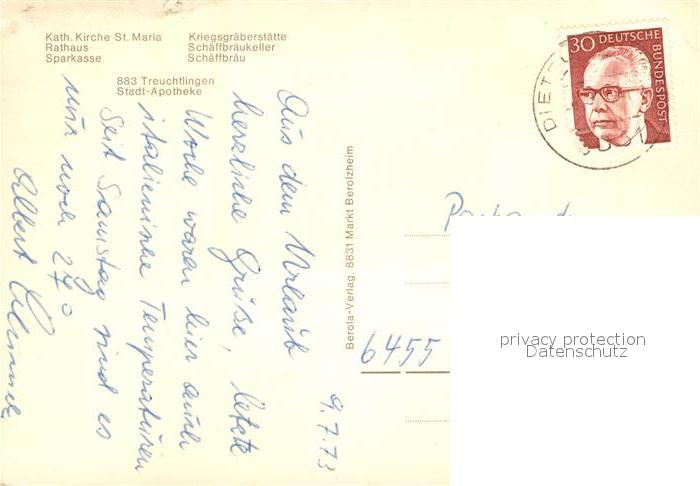 Kath. Kirche St. Maria Kriegsgräberstätte
Rathaus Schäffbräukeller
Sparkasse Schäffbräu
883 Treuchtlingen
Stadt-Apotheke
Aus dem Urlaub
herzliche Grüße, letzte
Woche waren hier auch
italienische Temperaturen
Seit Samstag sind es
nur noch 27°
Albert
9.7.73
Berola-Verlag, 8831 Markt Berolzheim
30 DEUTSCHE BUNDESPOST
DIET
6455
privacy protection
Datenschutz